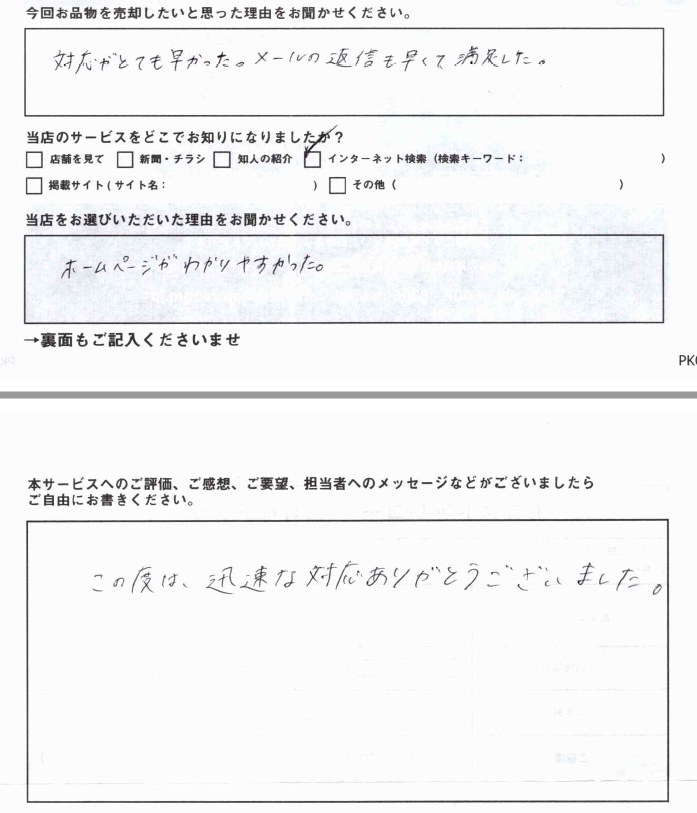 今回お品物を売却したいと思った理由をお聞かせください。
対応がとても早かった。メールの返信も早くて満足した。
当店のサービスをどこでお知りになりましたか？
□ 店舗を見て □ 新聞・チラシ □ 知人の紹介 ☑ インターネット検索（検索キーワード： ）
□ 掲載サイト（サイト名： ） □ その他（ ）
当店をお選びいただいた理由をお聞かせください。
ホームページがわかりやすかった。
→裏面もご記入くださいませ
本サービスへのご評価、ご感想、ご要望、担当者へのメッセージなどがございましたら
ご自由にお書きください。
この度は、迅速な対応ありがとうございました。